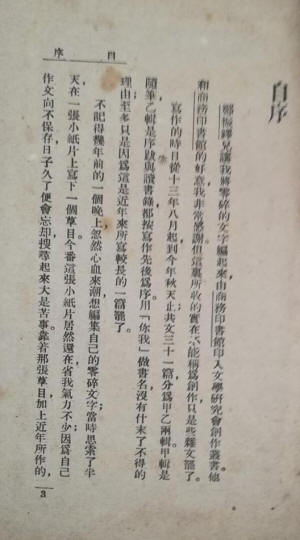 自序
自序
鄭振鐸兄讓我將零碎的文字編起來由商務印書館印入文學研究會創作叢書他
和商務印書館的好意我非常感謝但這裏所收的實在不能稱爲創作只是些雜文罷了。
寫作的時日從十三年八月起到今年秋天止共文三十一篇分爲甲乙兩輯甲輯是
隨筆乙輯是序跋與讀書錄都按寫作先後爲序用「你我」做書名沒有什末了不得的
理由至多只是因爲這是近年來所寫較長的一篇罷了。
不記得幾年前的一個晚上忽然心血來潮想編集自己的零碎文字；當時思索了半
天在一張小紙片上寫下一個草目今番這張小紙片居然還在省我氣力不少因爲自己
作文向不保存日子久了便會忘却搜尋起來大是苦事靠着那張草目加上近年所作的，
3